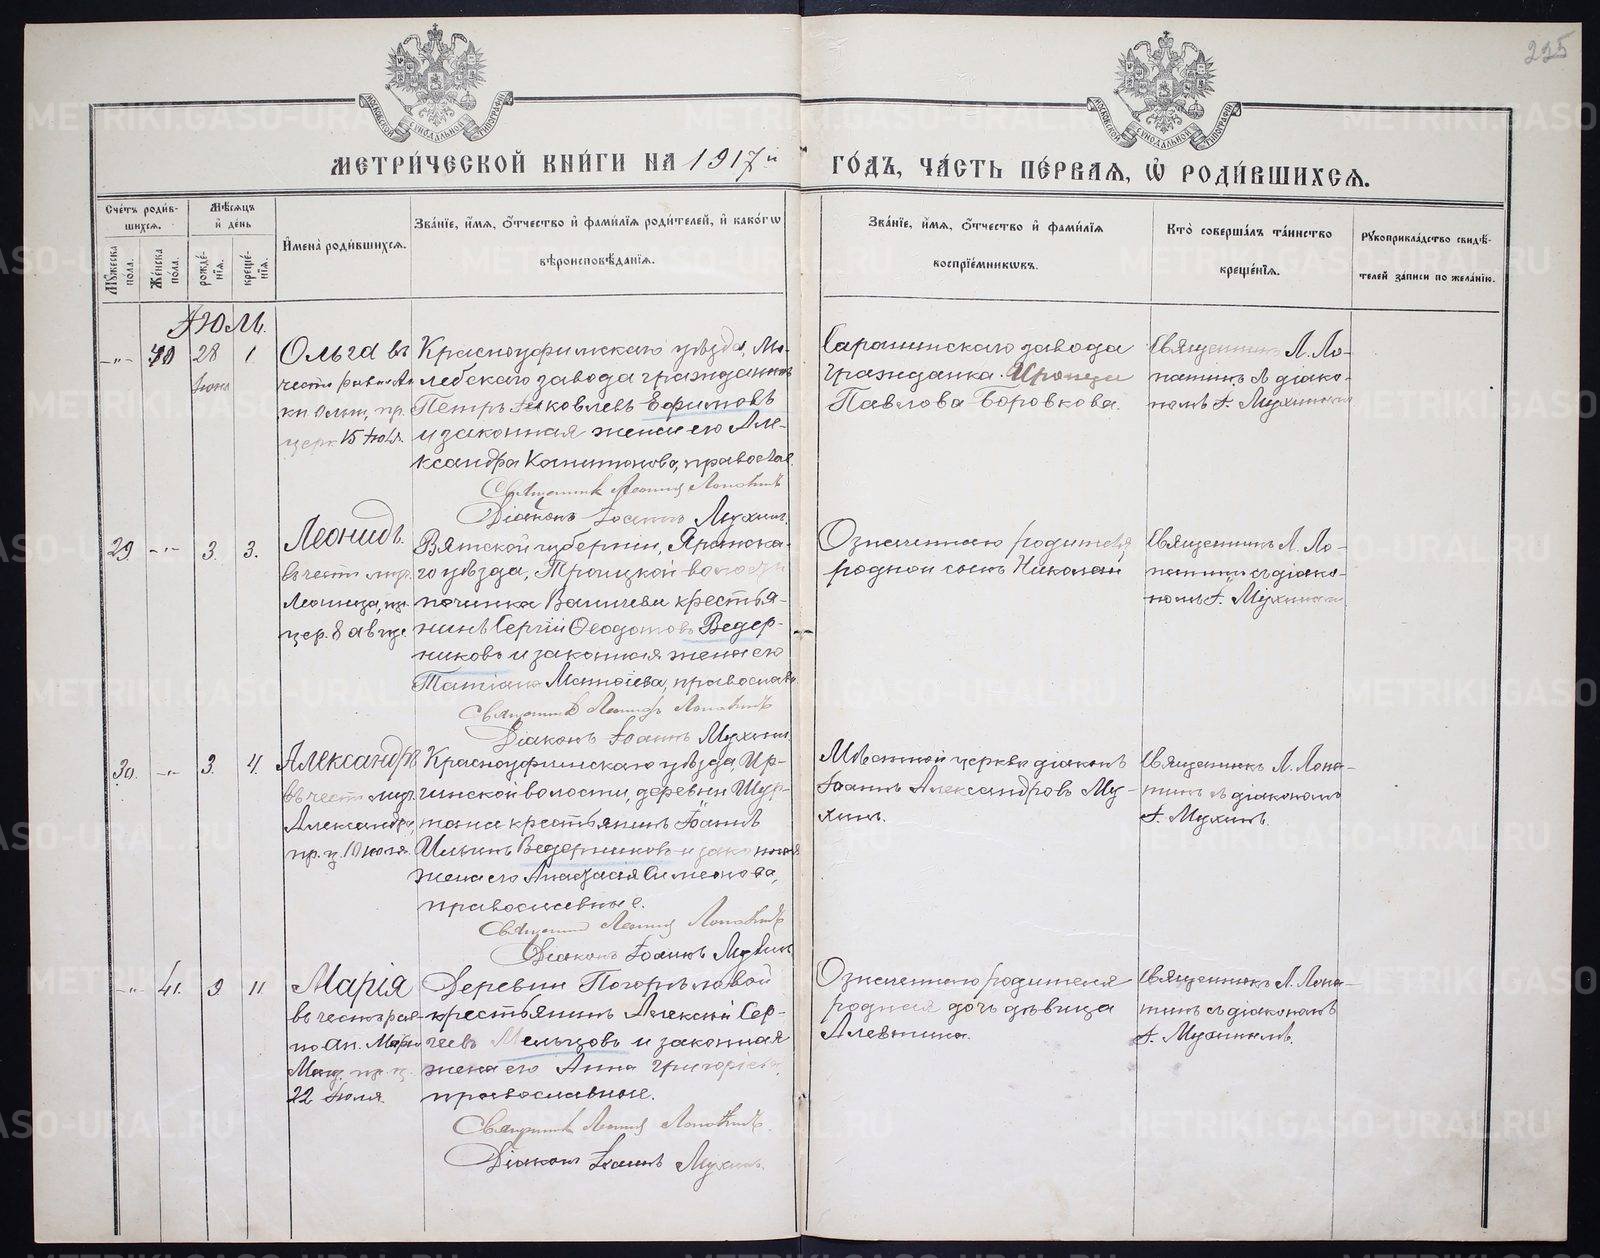 225
МЕТРИ́ЧЕСКОЙ КНИ́ГИ НА 1917й ГО́ДЪ, ЧА́СТЬ ПЕ́РВАѦ, Ѽ РОДИ́ВШИХСѦ.
Сче́тъ роди́вшихсѧ.
Мꙋ́жеска по́ла.
Же́нска по́ла.
Мѣ́сѧцъ и҆ де́нь
рожде́нїѧ.
креще́нїѧ.
И҆мена̀ роди́вшихсѧ.
Зва́нїе, и҆́мѧ, ѻ҆́тчество и҆ фами́лїѧ роди́телей, и҆ како́гѡ вѣроисповѣ́данїѧ.
Зва́нїе, и҆́мѧ, ѻ҆́тчество и҆ фами́лїѧ воспрїе́мникѡвъ.
Кто̀ соверша́лъ та́инство креще́нїѧ.
Рꙋкоприкла́дство свидѣ́телей за́писи по жела́нїю.
Іюль.
-"- 40 28 Іюня 1.
Ольга въ
чести равноап
кн Ольги, пр.
церк 15 Іюля.
Красноуфимскаго уѣзда, Мо-
лебскаго завода гражданинъ
Петръ Яковлевъ Ефимовъ
и законная жена его Але-
ксандра Капитонова, православ.
Священникъ Леонид Лопатинъ
Діаконъ Іоаннъ Мухин.
Саранинскаго завода
гражданка
Павлова Боровкова.
Священникъ Л. Ло-
патинъ съ діако-
номъ І. Мухинымъ
29 -"- 3. 3.
Леонидъ.
въ честь муч.
Леонида, пр.
цер. 8 авгус.
Вятской губерніи, Яранска-
го уѣзда, Троицкой волости
починка Ваничева крестья-
нинъ Сергій Ѳеодотовъ Ведер-
никовъ и законная жена его
Татіана Матѳіева, православн.
Священникъ Леонидъ Лопатинъ
Діаконъ Іоаннъ Мухинъ.
Означеннаго родителя
родной сынъ Николай
Священникъ Л. Ло-
патинъ съ діако-
номъ І. Мухинымъ
30. -"- 3. 4.
Александръ
въ честь муч.
Александра,
пр. ц. 10 іюля.
Красноуфимскаго уѣзда, Ир-
гинской волости, деревни Шур-
тана крестьянинъ Іоаннъ
Ильинъ Ведерниковъ и законная
жена его Анастасія Симеонова,
православные.
Священник Леонид Лопатинъ
Діаконъ Іоаннъ Мухин
Мѣстной церкви діаконъ
Іоаннъ Александровъ Му-
хинъ.
Священникъ Л. Лопа-
тинъ съ діакономъ
І. Мухинъ.
-"- 41. 9 11.
Марія
въ честь рав-
но ап. Маріи
Магд. пр. ц.
22 Іюля.
Деревни Погорѣловой
крестьянинъ Алексій Сер-
гѣевъ Мельцовъ и законная
жена его Анна Григоріева,
православные.
Священникъ Леонид Лопатинъ.
Діаконъ Іоаннъ Мухинъ.
Означеннаго родителя
родная дочь дѣвица
Алевтина.
Священникъ Л. Лопа-
тинъ съ діакономъ
І. Мухинымъ.
METRIKI.GASO-URAL.RU